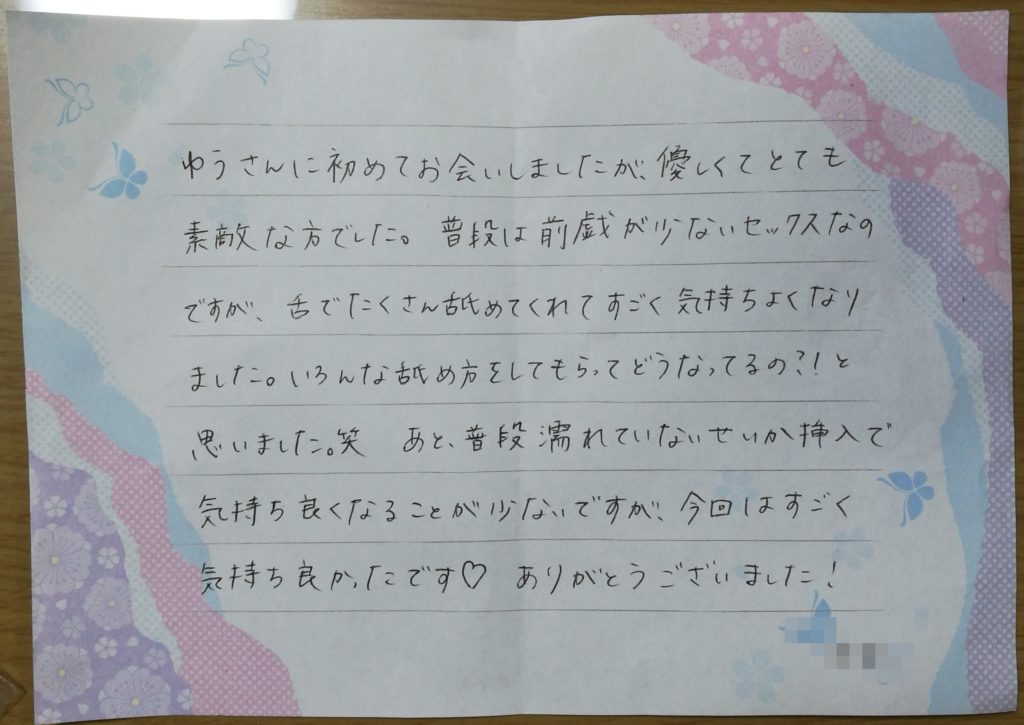 ゆうさんに初めてお会いしましたが、優しくてとても
素敵な方でした。 普段は前戯が少ないセックスなの
ですが、舌でたくさん舐めてくれてすごく気持ちよくなり
ました。いろんな舐め方をしてもらってどうなってるの?!と
思いました。笑 あと、普段濡れていないせいか挿入で
気持ち良くなることが少ないですが、今回はすごく
気持ち良かったです♡ ありがとうございました!